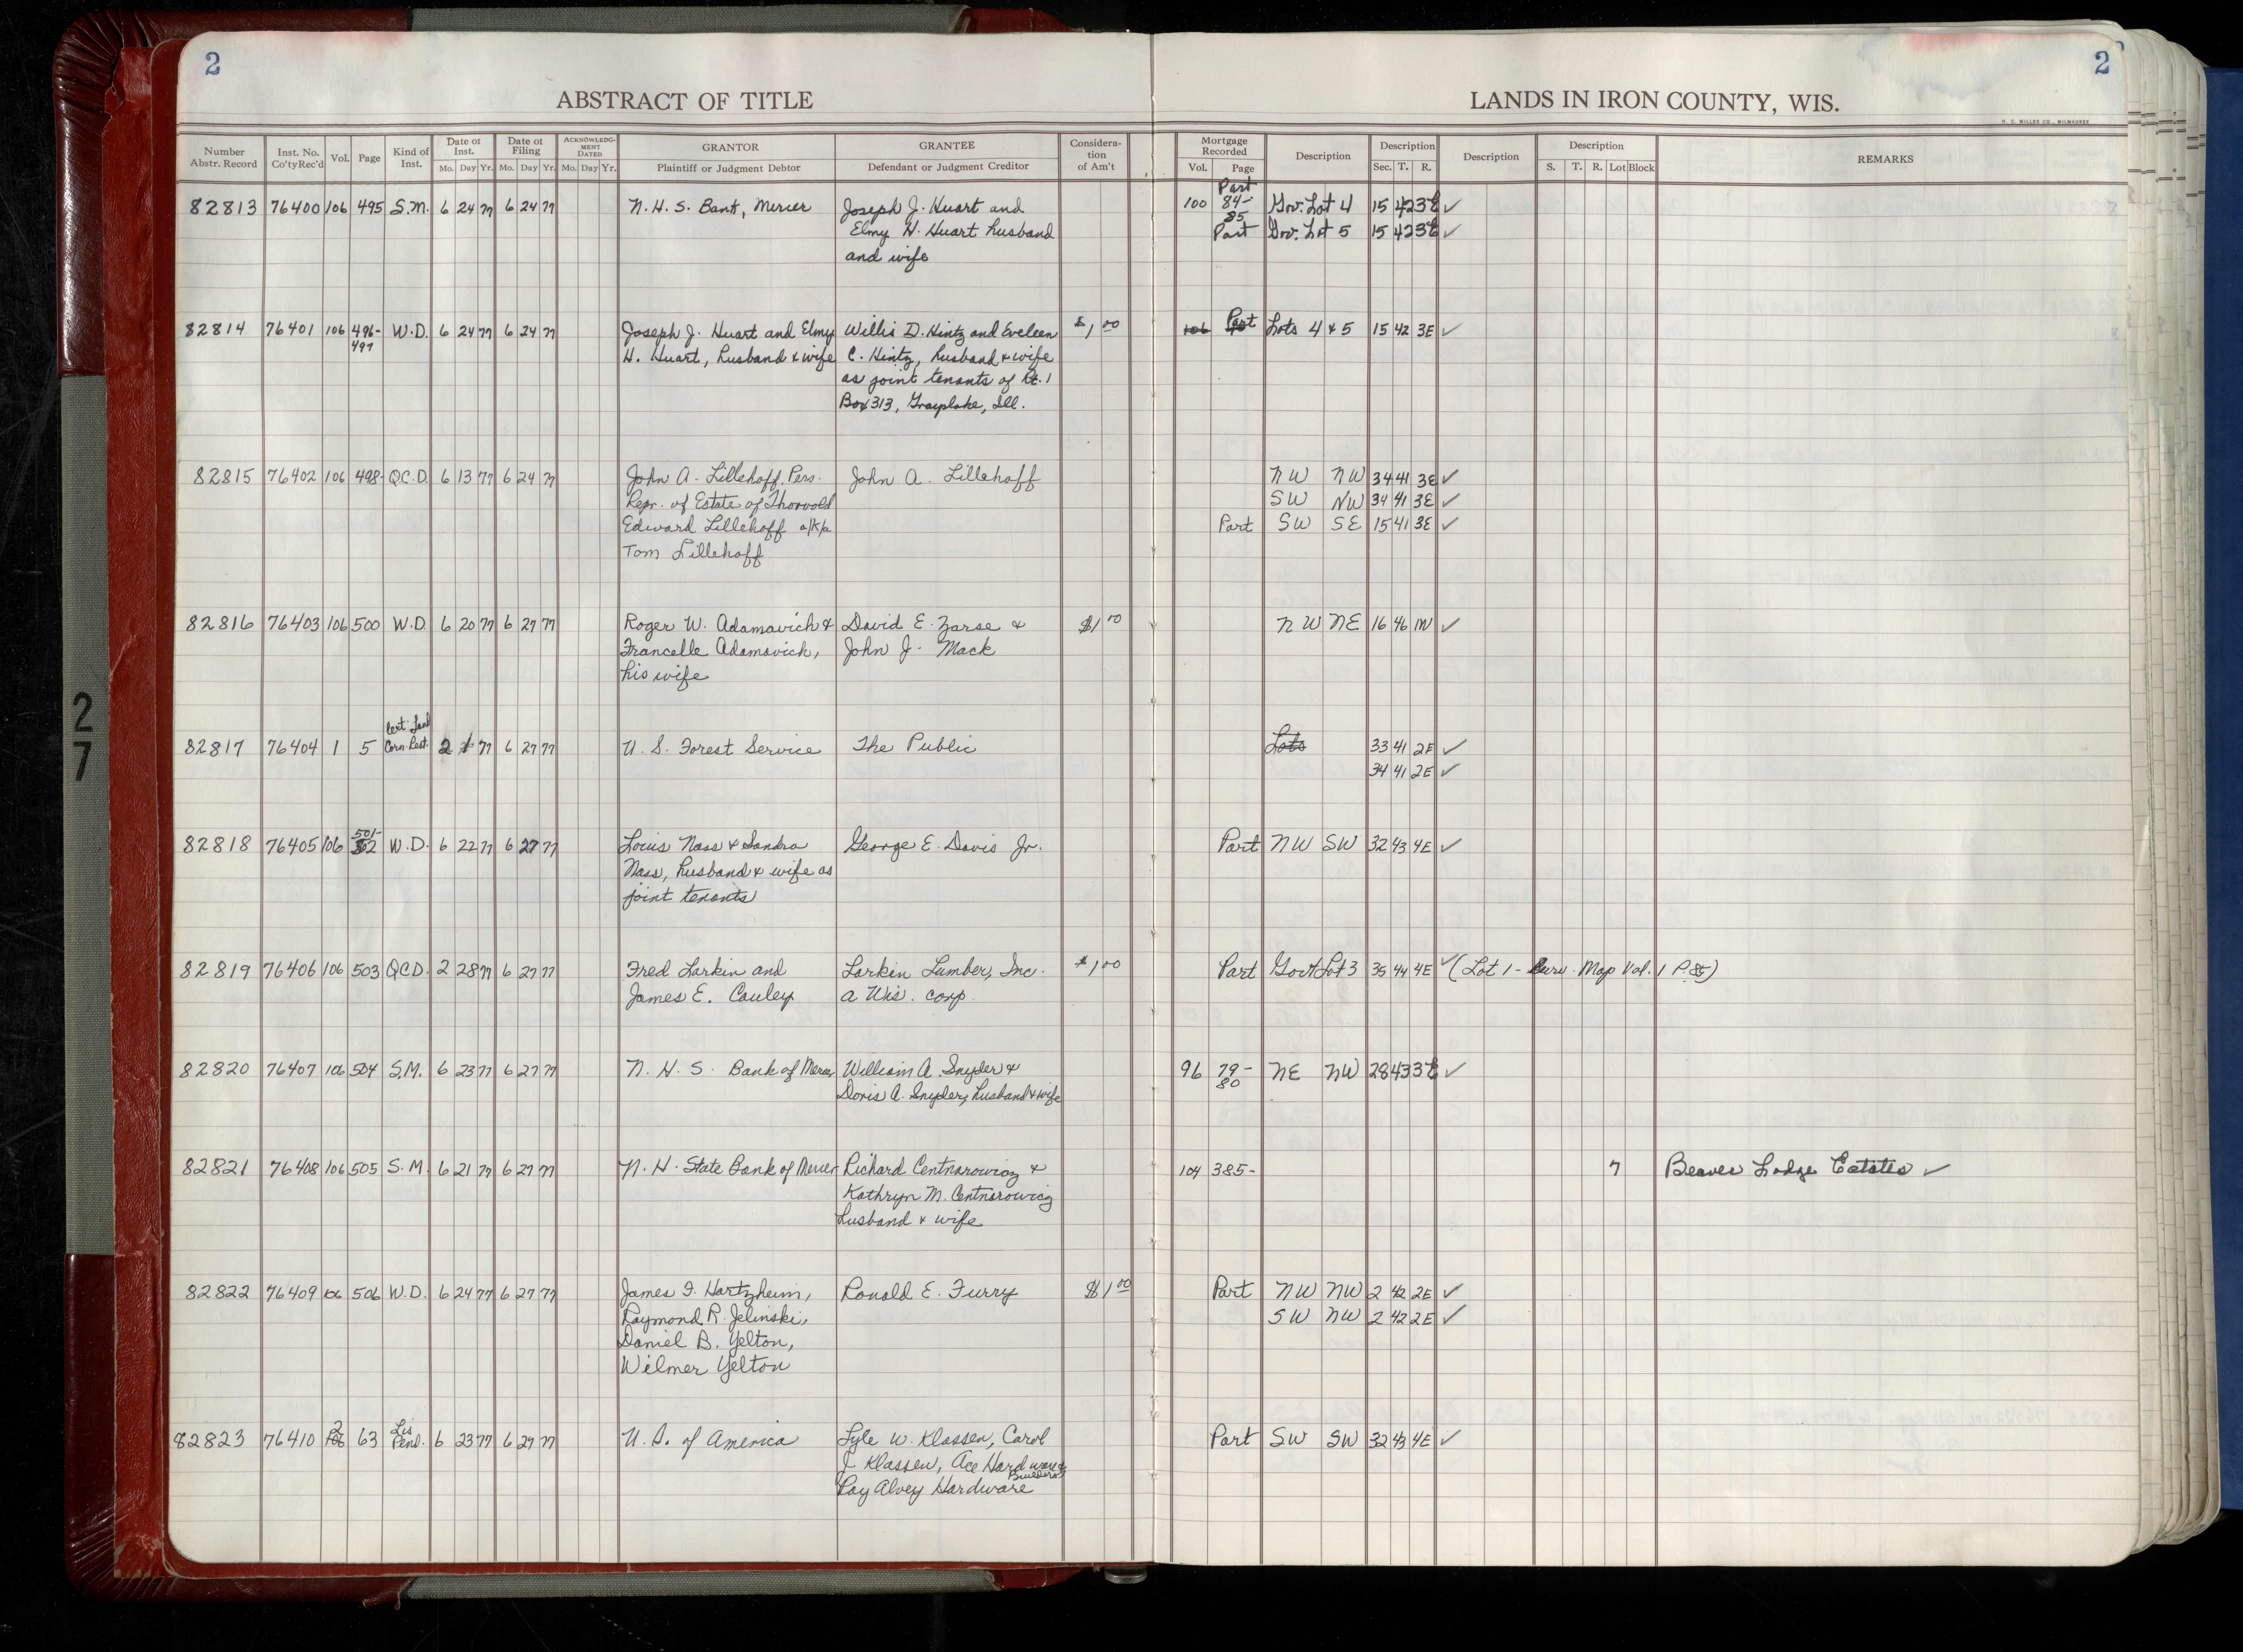 2
2
ABSTRACT OF TITLE
LANDS IN IRON COUNTY, WIS.
H. C. MILLER CO., MILWAUKEE
Number Abstr. Record
Inst. No. Co'ty Rec'd
Vol.
Page
Kind of Inst.
Date of Inst.
Mo. Day Yr.
Date of Filing
Mo. Day Yr.
ACKNOWLEDGMENT DATED
Mo. Day Yr.
GRANTOR
Plaintiff or Judgment Debtor
GRANTEE
Defendant or Judgment Creditor
Consideration of Am't
Mortgage Recorded
Vol. Page
Description
Description
Sec. T. R.
Description
Description
S. T. R. Lot Block
REMARKS
82813 76400 106 495 S.M. 6 24 77 6 24 77 N. H. S. Bank, Mercer Joseph J. Huart and 100 Part 84-85 Gov. Lot 4 15 42 3E ✓
Elmy H. Huart husband Part Gov. Lot 5 15 42 3E ✓
and wife
82814 76401 106 496-497 W.D. 6 24 77 6 24 77 Joseph J. Huart and Elmy Willis D. Hintz and Eveleen $1 00 106 Part Lots 4 & 5 15 42 3E ✓
H. Huart, husband & wife C. Hintz, husband & wife
as joint tenants of Rt. 1
Box 313, Grayslake, Ill.
82815 76402 106 498- Q.C.D. 6 13 77 6 24 77 John A. Lillehoff Pers. John A. Lillehoff NW NW 34 41 3E ✓
Repr. of Estate of Thorvold SW NW 34 41 3E ✓
Edward Lillehoff a/k/a Part SW SE 15 41 3E ✓
Tom Lillehoff
82816 76403 106 500 W.D. 6 20 77 6 27 77 Roger W. Adamavich & David E. Zarse & $1 00 NW NE 16 46 1W ✓
Francelle Adamavich, John J. Mack
his wife
82817 76404 1 5 Cert. Land Corn. Rest. 2 1 77 6 27 77 U. S. Forest Service The Public Lots 33 41 2E ✓
34 41 2E ✓
82818 76405 106 501-502 W.D. 6 22 77 6 27 77 Louis Nass & Sandra George E. Davis Jr. Part NW SW 32 43 4E ✓
Nass, husband & wife as
joint tenants
82819 76406 106 503 QCD. 2 28 77 6 27 77 Fred Larkin and Larkin Lumber, Inc. $1 00 Part Govt Lot 3 35 44 4E ✓ (Lot 1 - Surv. Map Vol. 1 P. 85)
James E. Cauley a Wis. corp.
82820 76407 106 504 S.M. 6 23 77 6 27 77 N. H. S. Bank of Mercer William A. Snyder & 96 79-80 NE NW 28 43 3E ✓
Doris A. Snyder, husband & wife
82821 76408 106 505 S.M. 6 21 77 6 27 77 N. H. State Bank of Mercer Richard Centnarowicz & 104 385- 7 Beaver Lodge Estates ✓
Kathryn M. Centnarowicz
husband & wife
82822 76409 106 506 W.D. 6 24 77 6 27 77 James F. Hartzheim, Ronald E. Furry $1 00 Part NW NW 2 42 2E ✓
Raymond R. Jelinski, SW NW 2 42 2E ✓
Daniel B. Yelton,
Wilmer Yelton
82823 76410 2 63 Lis Pend. 6 23 77 6 27 77 U. S. of America Lyle W. Klassen, Carol Part SW SW 32 43 4E ✓
J Klassen, Ace Hardware &
Builders
Ray Alvey Hardware
2
7